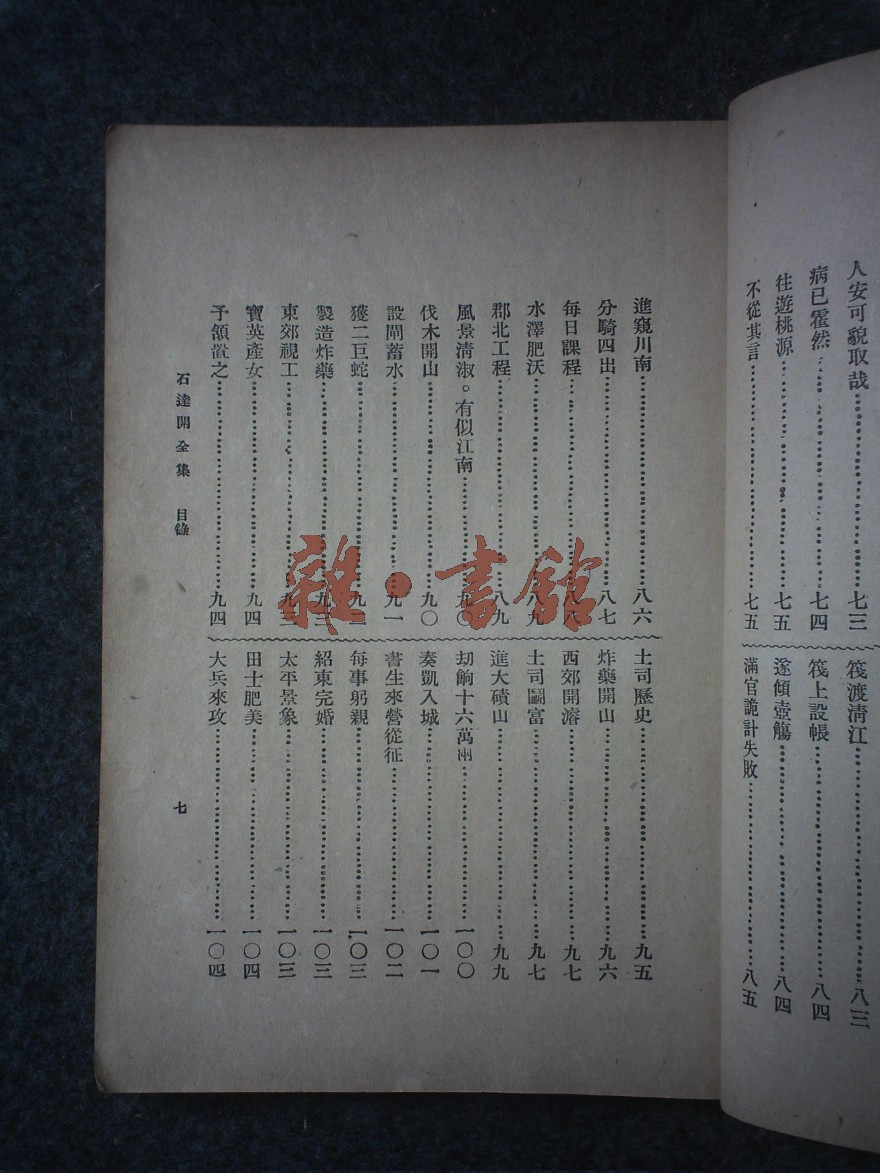 人安可貌取哉……七三
病已霍然……七四
往遊桃源……七五
不從其言……七五
筏渡淸江……八三
筏上設帳……八四
遂傾壺觴……八四
滿官詭計失敗……八五
進窺川南……八六
分騎四出……八七
每日課程……八八
水澤肥沃……八九
郡北工程……八九
風景淸淑。有似江南……九〇
伐木開山……九〇
設閘蓄水……九一
獲二巨蛇……九二
製造炸藥……九三
東郊視工……九三
寶英產女……九四
予頷置之……九四
土司歷史……九五
炸藥開山……九六
西郊開濬……九七
土司鬭富……九七
進大磧山……九九
劫餉十六萬兩……一〇〇
奏凱入城……一〇一
書生來營從征……一〇二
每事躬親……一〇三
紹東完婚……一〇三
太平景象……一〇三
田土肥美……一〇四
大兵來攻……一〇四
石達開全集 目錄
七
雜·書館